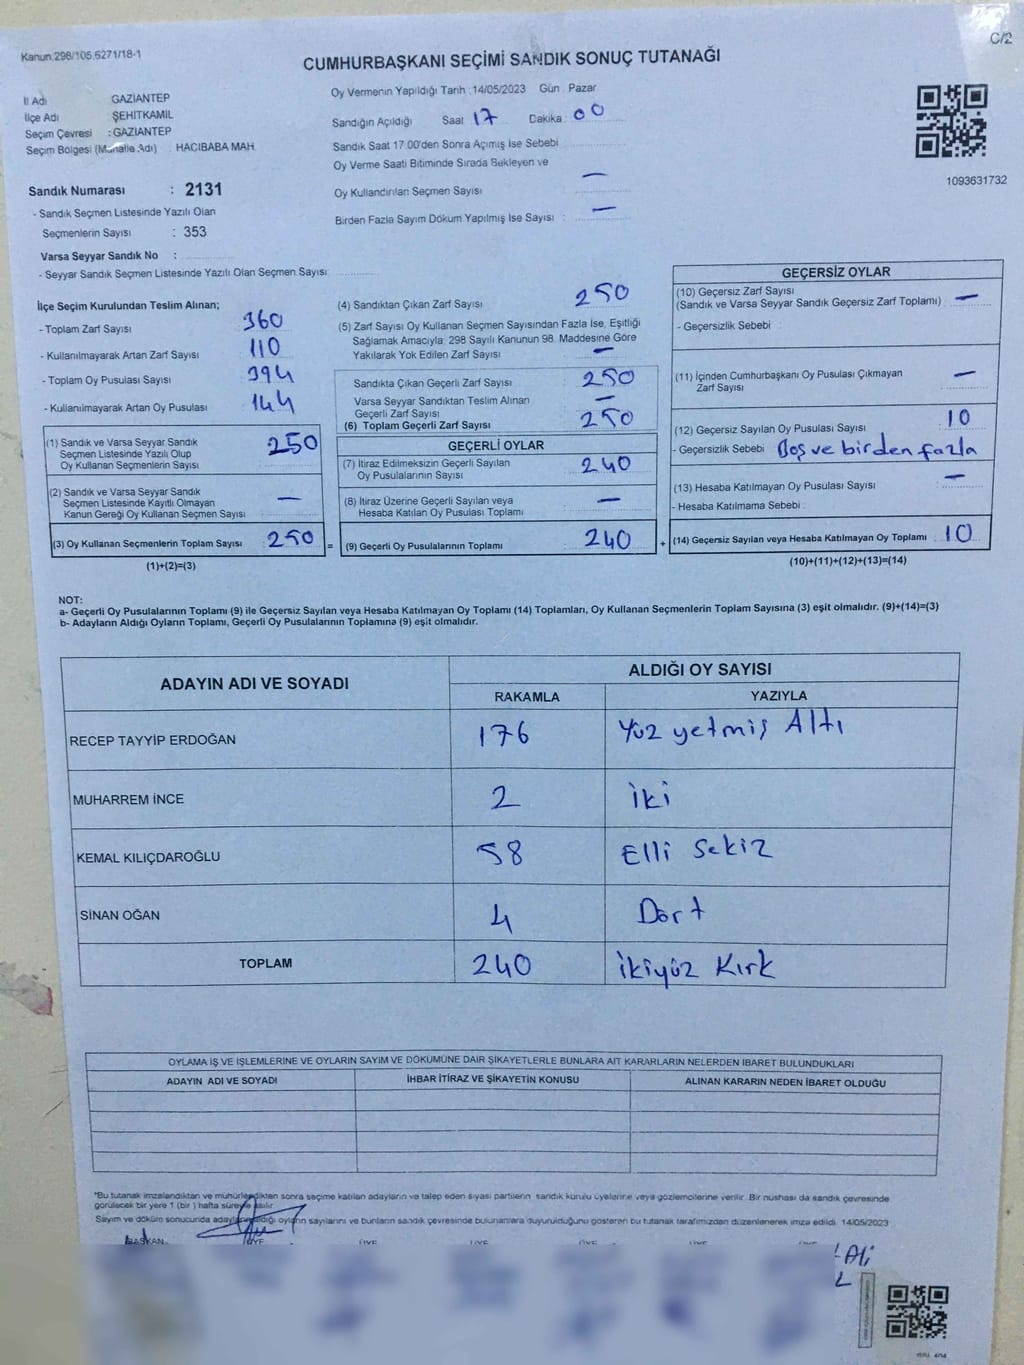 Kanun:298/105,6271/18-1
C/2
CUMHURBAŞKANI SEÇİMİ SANDIK SONUÇ TUTANAĞI
İl Adı GAZİANTEP
İlçe Adı ŞEHİTKAMİL
Seçim Çevresi : GAZİANTEP
Seçim Bölgesi (Mahalle Adı) : HACIBABA MAH.
Sandık Numarası : 2131
- Sandık Seçmen Listesinde Yazılı Olan
Seçmenlerin Sayısı : 353
Varsa Seyyar Sandık No :
- Seyyar Sandık Seçmen Listesinde Yazılı Olan Seçmen Sayısı:
Oy Vermenin Yapıldığı Tarih : 14/05/2023 Gün : Pazar
Sandığın Açıldığı Saat 17 Dakika : 00
Sandık Saat 17:00'den Sonra Açımış İse Sebebi
Oy Verme Saati Bitiminde Sırada Bekleyen ve
Oy Kullandırılan Seçmen Sayısı : —
Birden Fazla Sayım Döküm Yapılmış İse Sayısı : —
1093631732
İlçe Seçim Kurulundan Teslim Alınan;
- Toplam Zarf Sayısı 360
- Kullanılmayarak Artan Zarf Sayısı 110
- Toplam Oy Pusulası Sayısı 394
- Kullanılmayarak Artan Oy Pusulası 144
(1) Sandık ve Varsa Seyyar Sandık
Seçmen Listesinde Yazılı Olup
Oy Kullanan Seçmenlerin Sayısı 250
(2) Sandık ve Varsa Seyyar Sandık
Seçmen Listesinde Kayıtlı Olmayan
Kanun Gereği Oy Kullanan Seçmen Sayısı —
(3) Oy Kullanan Seçmenlerin Toplam Sayısı 250 =
(1)+(2)=(3)
(4) Sandıktan Çıkan Zarf Sayısı 250
(5) Zarf Sayısı Oy Kullanan Seçmen Sayısından Fazla İse, Eşitliği
Sağlamak Amacıyla; 298 Sayılı Kanunun 98. Maddesine Göre
Yakılarak Yok Edilen Zarf Sayısı —
Sandıkta Çıkan Geçerli Zarf Sayısı 250
Varsa Seyyar Sandıktan Teslim Alınan
Geçerli Zarf Sayısı —
(6) Toplam Geçerli Zarf Sayısı 250
GEÇERLİ OYLAR
(7) İtiraz Edilmeksizin Geçerli Sayılan
Oy Pusulalarının Sayısı 240
(8) İtiraz Üzerine Geçerli Sayılan veya
Hesaba Katılan Oy Pusulası Toplamı —
(9) Geçerli Oy Pusulalarının Toplamı 240 +
GEÇERSİZ OYLAR
(10) Geçersiz Zarf Sayısı
(Sandık ve Varsa Seyyar Sandık Geçersiz Zarf Toplamı) —
- Geçersizlik Sebebi :
(11) İçinden Cumhurbaşkanı Oy Pusulası Çıkmayan
Zarf Sayısı —
(12) Geçersiz Sayılan Oy Pusulası Sayısı 10
- Geçersizlik Sebebi Boş ve birden fazla
(13) Hesaba Katılmayan Oy Pusulası Sayısı —
- Hesaba Katılmama Sebebi :
(14) Geçersiz Sayılan veya Hesaba Katılmayan Oy Toplamı 10
(10)+(11)+(12)+(13)=(14)
NOT:
a- Geçerli Oy Pusulalarının Toplamı (9) ile Geçersiz Sayılan veya Hesaba Katılmayan Oy Toplamı (14) Toplamları, Oy Kullanan Seçmenlerin Toplam Sayısına (3) eşit olmalıdır. (9)+(14)=(3)
b- Adayların Aldığı Oyların Toplamı, Geçerli Oy Pusulalarının Toplamına (9) eşit olmalıdır.
ADAYIN ADI VE SOYADI ALDIĞI OY SAYISI
RAKAMLA YAZIYLA
RECEP TAYYİP ERDOĞAN 176 Yüz yetmiş Altı
MUHARREM İNCE 2 İki
KEMAL KILIÇDAROĞLU 58 Elli Sekiz
SİNAN OĞAN 4 Dört
TOPLAM 240 İkiyüz Kırk
OYLAMA İŞ VE İŞLEMLERİNE VE OYLARIN SAYIM VE DÖKÜMÜNE DAİR ŞİKAYETLERLE BUNLARA AİT KARARLARIN NELERDEN İBARET BULUNDUKLARI
ADAYIN ADI VE SOYADI İHBAR İTİRAZ VE ŞİKAYETİN KONUSU ALINAN KARARIN NEDEN İBARET OLDUĞU
*Bu tutanak imzalandıktan ve mühürlendikten sonra seçime katılan adayların ve talep eden siyasi partilerin sandık kurulu üyelerine veya gözlemcilerine verilir. Bir nüshası da sandık çevresinde
görülecek bir yere 1 (bir) hafta süreyle asılır.
Sayım ve döküm sonucunda adayların aldığı oyların sayılarını ve bunların sandık çevresinde bulunanlara duyurulduğunu gösteren bu tutanak tarafımızdan düzenlenerek imza edildi. 14/05/2023
BAŞKAN ÜYE ÜYE ÜYE ÜYE ÜYE
Ali